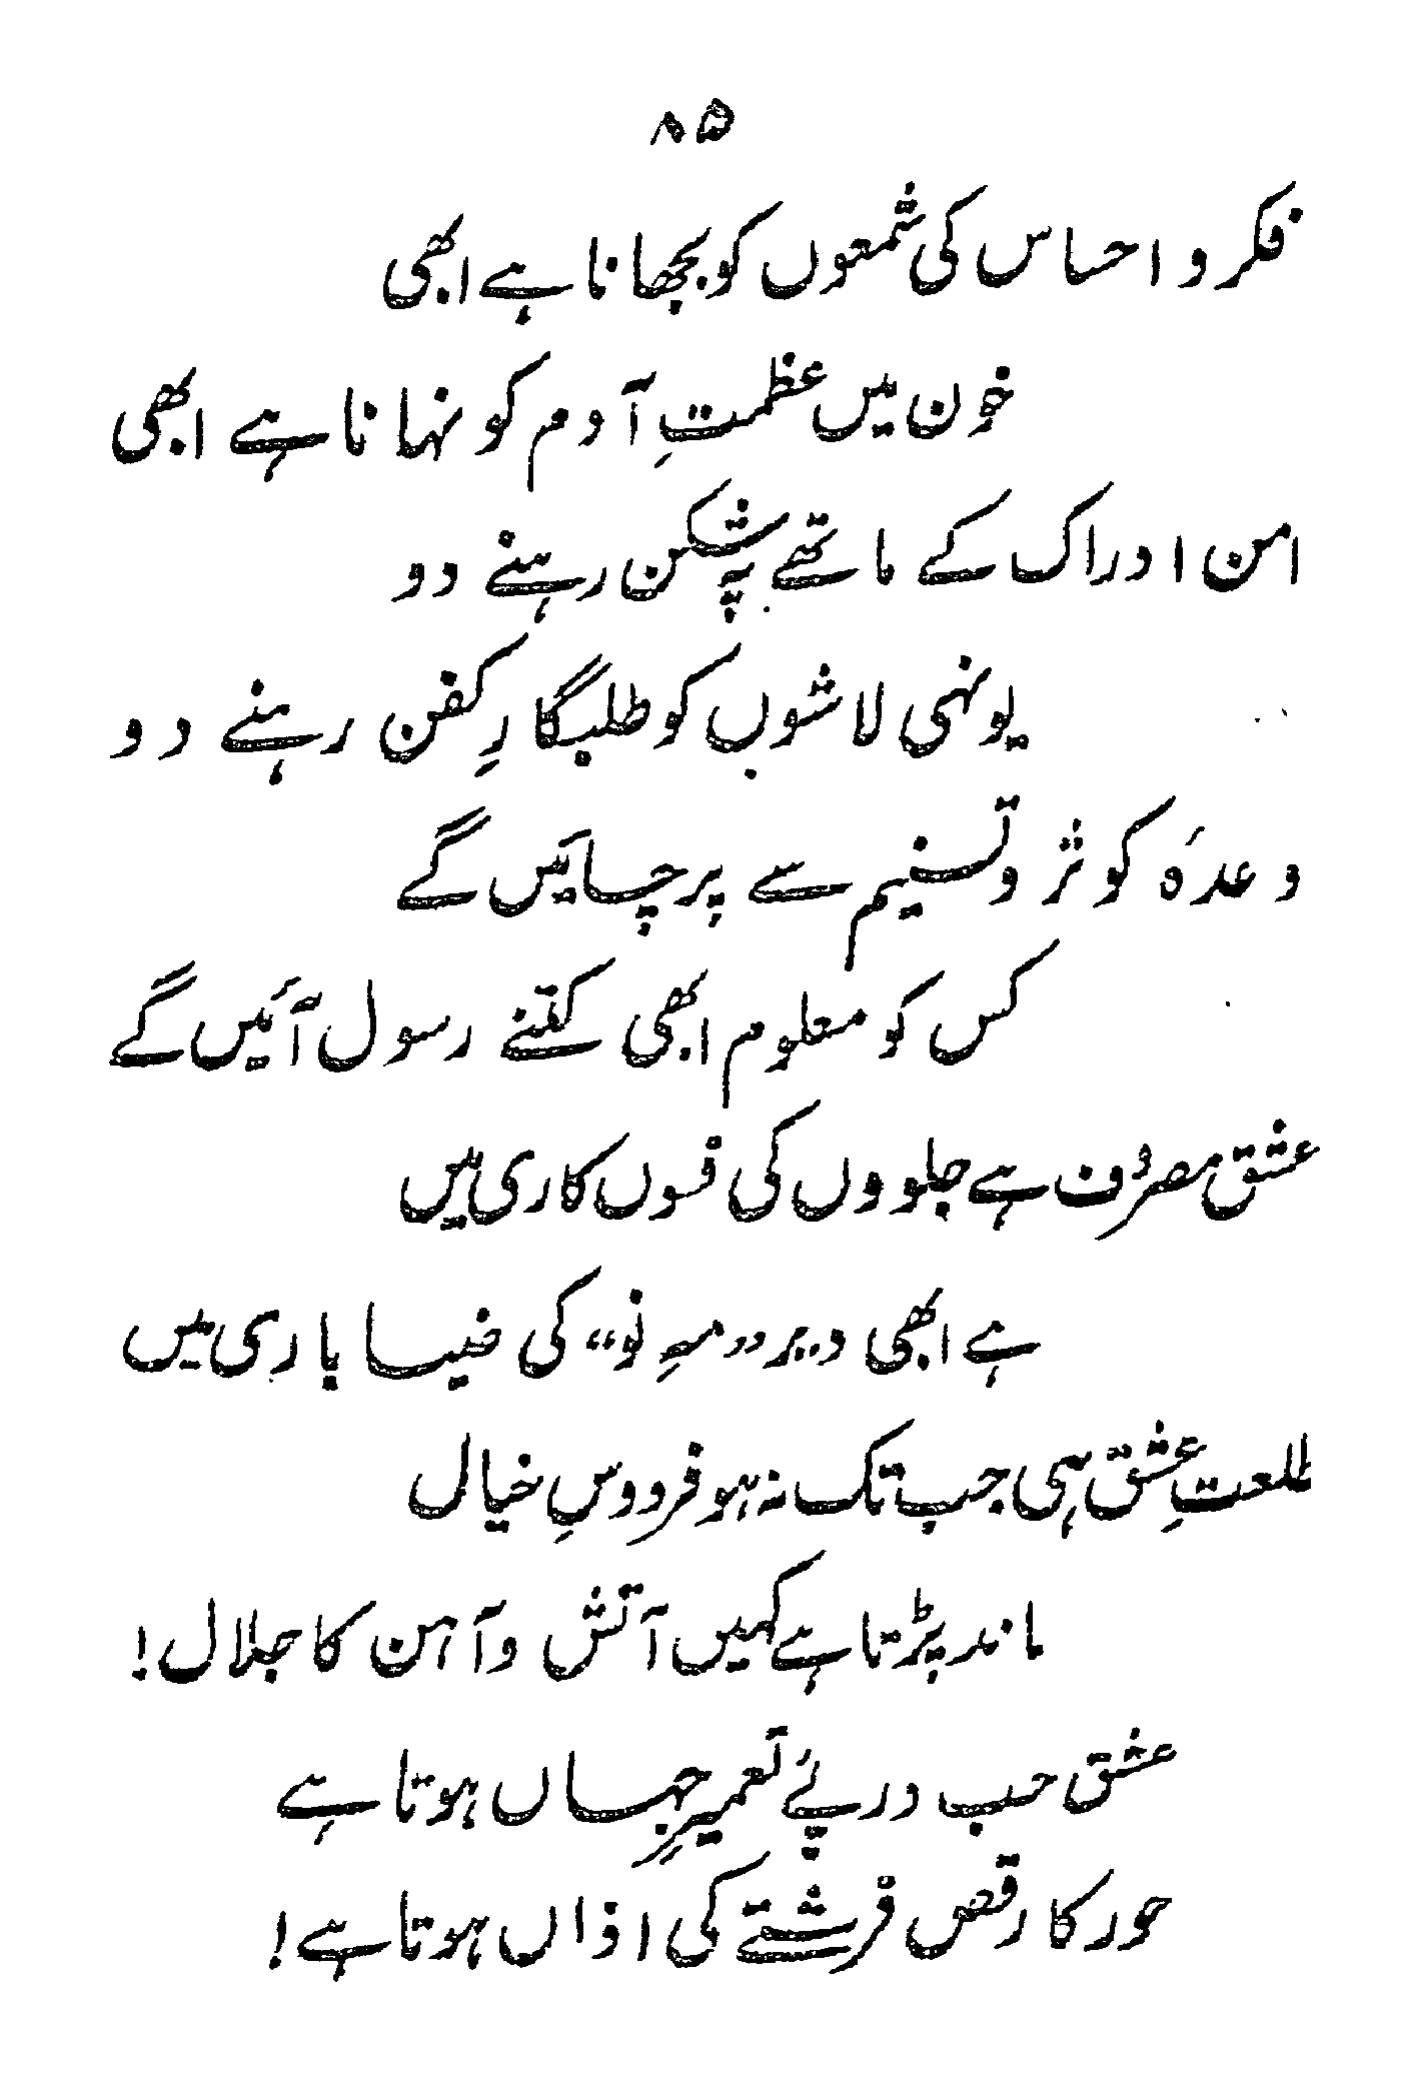 ۸۵
فکر و احساس کی شمعوں کو بجھانا ہے ابھی
خون میں عظمتِ آدم کو نہانا ہے ابھی
امن ادراک کے ماتھے پہ شکن رہنے دو
یونہی لاشوں کو طلبگارِ کفن رہنے دو
وعدۂ کوثر و تسنیم سے پرچائیں گے
کس کو معلوم ابھی کتنے رسول آئیں گے
عشق مصروف ہے جلووں کی فسوں کاری میں
ہے ابھی دیر ”مہِ نو“ کی ضیا باری میں
طلعتِ عشق ہی جب تک نہ ہو فردوسِ خیال
ماند پڑتا ہے کہیں آتش و آہن کا جلال!
عشق جب درپئے تعمیرِ جہاں ہوتا ہے
حور کا رقص فرشتے کی اذاں ہوتا ہے!